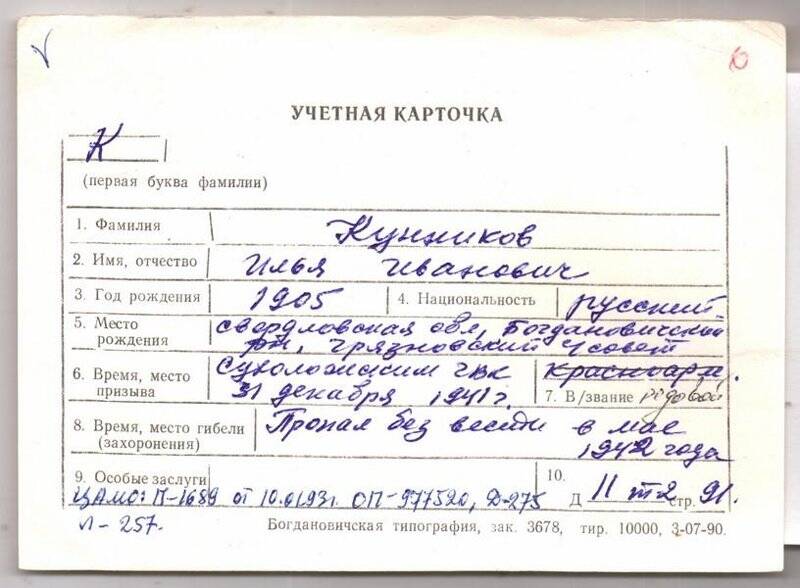 УЧЕТНАЯ КАРТОЧКА
К
(первая буква фамилии)
1. Фамилия Кунников
2. Имя, отчество Илья Иванович
3. Год рождения 1905 4. Национальность русский
5. Место рождения свердловская обл, Богдановичский
рн, Грязновский с/совет
6. Время, место призыва Сухоложским гвк
31 декабря 1941г.
Красноарм.
7. В/звание рядовой
8. Время, место гибели (захоронения) Пропал без вести в мае
1942 года
9. Особые заслуги
10.
ЦАМО: П-1689 от ОП-977520, Д-275
Д 11 т2 стр. 91.
Л-257.
Богдановичская типография, зак. 3678, тир. 10000, 3-07-90.